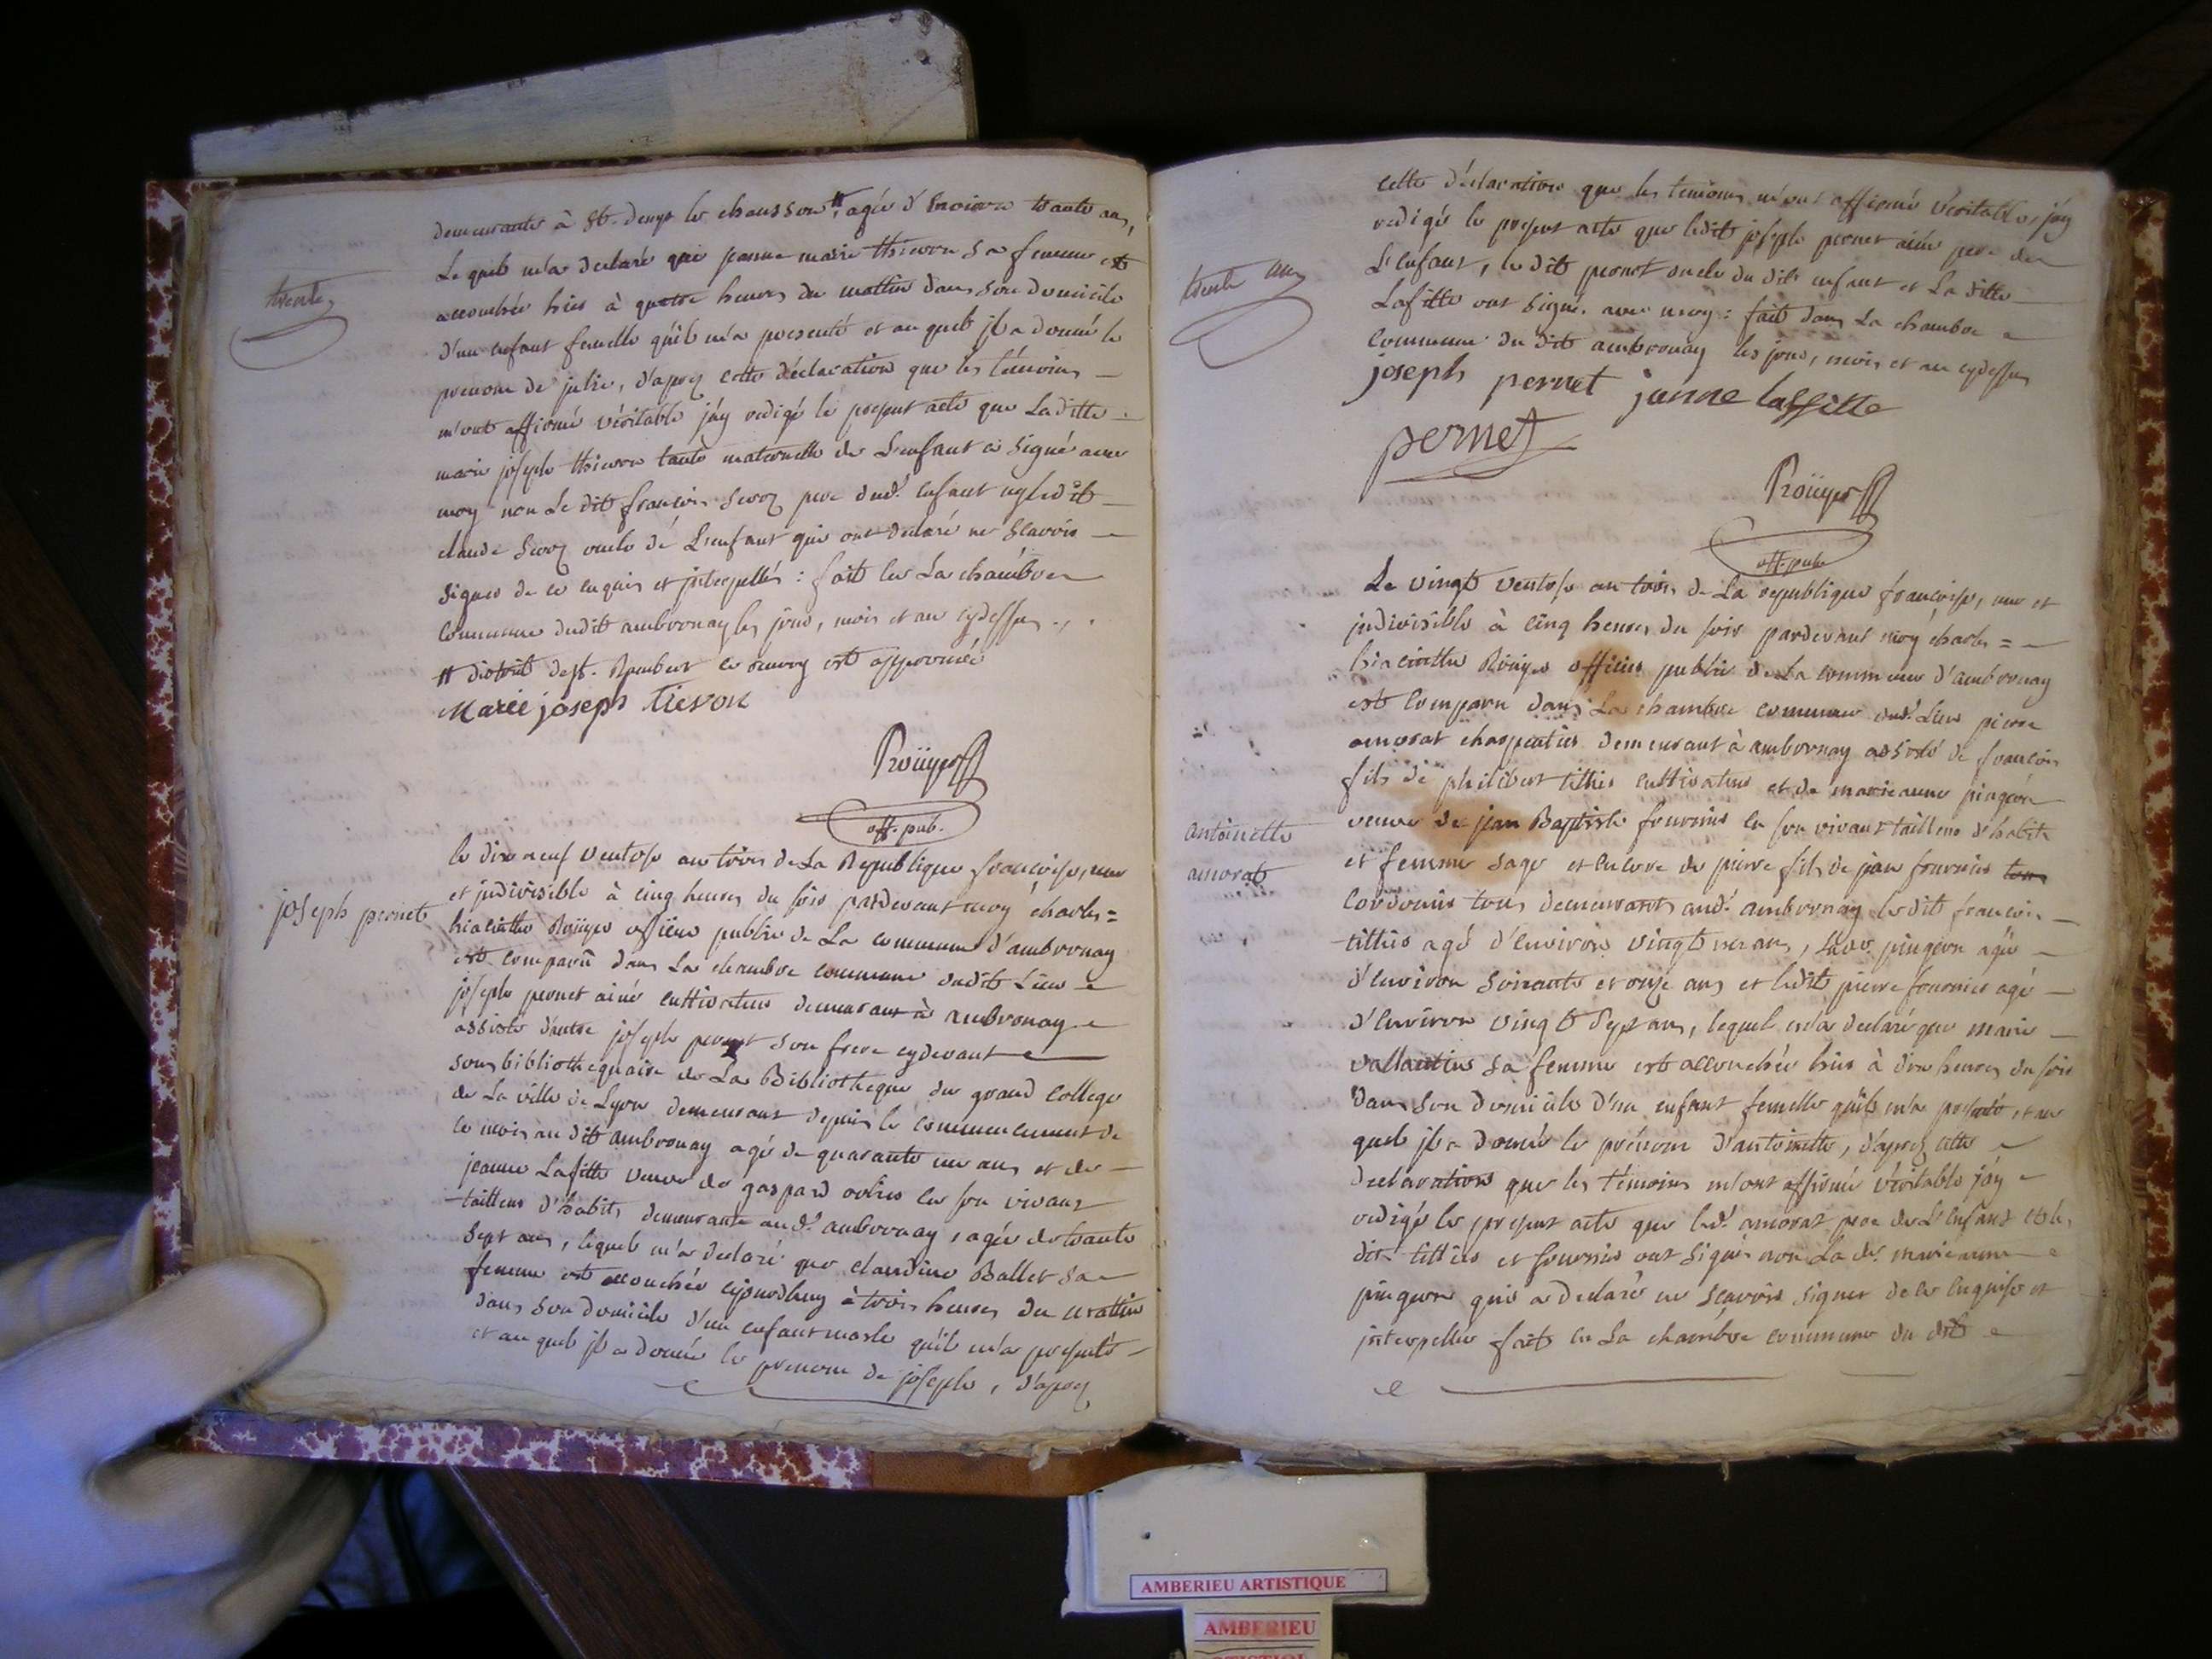 demeurante à St. denys le chausson # agée d'environ trante ans,
Le quel m'a declaré que jeanne marie thievon sa femme est
accouchée hier à quatre heures du mattin dans son domicile
d'un enfant femelle qu'il m'a presenté et au quel jl a donné le
prenom de julie, d'aprez cette déclaration que les témoins
m'ont affirmé véritable j'ay redigé le present acte que Laditte
marie joseph thievon tante maternelle de L'enfant a signé avec
moy non Le dit francois pere dud. enfant ny ledit
claude oncle dé L'enfant qui ont declaré ne scavoir
signer de ce enquis et jnterpellés : fait en La chambre
commune dudit ambronay les jour, mois et an cydessus
# district de st. Rambert le renvoy est approuvée
Marie joseph tievon
Roüyer
off. pub.
trente
joseph pernet
le dix neuf ventose an trois de La Republique francoise, une
et jndivisible à cinq heures du soir pardevant moy charles =
hiacinthe Roüyer officier public de La commune d'ambronay
est comparû dans La chambre commune dudit Lieu
joseph pernet ainé cultivateur demeurant à ambronay
assisté d'autre joseph pernet son frere cydevant
sous bibliothequaire de La Bibliotheque du grand College
de La ville de Lyon demeurant depuis le commencement de
ce mois au dit ambronay agé de quarante un ans et de
jeanne Lafitte veuve de gaspard en son vivant
tailleur d'habits demeurante aud. ambronay, agée de trante
sept ans, lequel m'a declaré que claudine Ballet sa
femme est accouchée cejourdhuy à trois heures du mattin
dans son domicile d'un enfant masle qu'il m'a presenté
et au quel jl a donné le prenom de joseph, d'aprez
cette déclaration que les temoins m'ont affirmé véritable, j'ay
redigé le present acte que ledit joseph pernet ainé pere de
L'enfant, le dit pernet oncle du dit enfant et La ditte
Lafitte ont signé avec moy : fait dans La chambre
commune du dit ambronay les jour, mois et an cydessus
trente un
joseph pernet janne laffitte
pernet
Roüyer
off. pub.
Le vingt ventose an trois de La republique francoise, une et
jndivisible à cinq heures du soir pardevant moy charles =
hiacinthe Roüyer officier public de La commune d'ambronay
est comparu dans La chambre commune dud. Lieu pierre
amorat charpentier demeurant à ambronay assisté de francois
fils de philibert tithier cultivateur et de marieanne pingeon
antoinette
amorat
veuve de jean Baptiste fournier en son vivant tailleur d'habits
et femme sage et encore de pierre fils de jean fournier tous
cordonier tous demeurants aud. ambronay ledit francois
tithier agé d'environ vingt un ans, lad. pingeon agée
d'environ soixante et onze ans et ledit pierre fournier agé
d'environ vingt sept ans, lequel m'a declaré que marie
vallantin sa femme est accouchée hier à dix heures du soir
dans son domicile d'un enfant femelle qu'il m'a presenté, et au
quel jl a donné le prénom d'antoinette, d'aprez cette
declaration que les témoins m'ont affirmé véritable j'ay
redigé le present acte que led. amorat pere de L'enfant et les
dit tithier et fournier ont signé non La d. marieanne
pingeon qui a declaré ne scavoir signer de ce enquise et
jnterpellée fait en La chambre commune du dit
AMBERIEU ARTISTIQUE
AMBERIEU
ARTISTIQUE